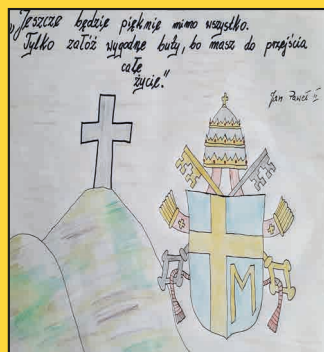 „Jeszcze będzie pięknie mimo wszystko.
Tylko załóż wygodne buty, bo masz do przejścia
całe
życie."
Jan Paweł II
M